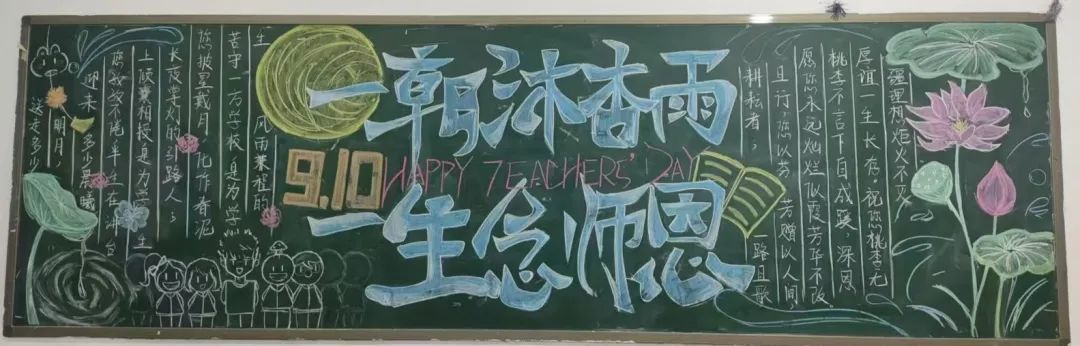 送走多少
明月，
迎来多少晨曦
您孜孜不倦 一生在讲台
上倾囊相授是为学生
长夜里的引路人；
您披星戴月 化作春泥
苦守一方学校是为学
生 风雨兼程的
一朝沐杏雨
9.10 HAPPY TEACHERS' DAY
一生念师恩
耕耘者，一路且歌
且行，您以芬芳赠以人间
愿您永远灿烂似霞芳华不改
桃李不言下自成蹊 深恩
厚谊一生长存，祝您桃李无
疆理想炬火不灭